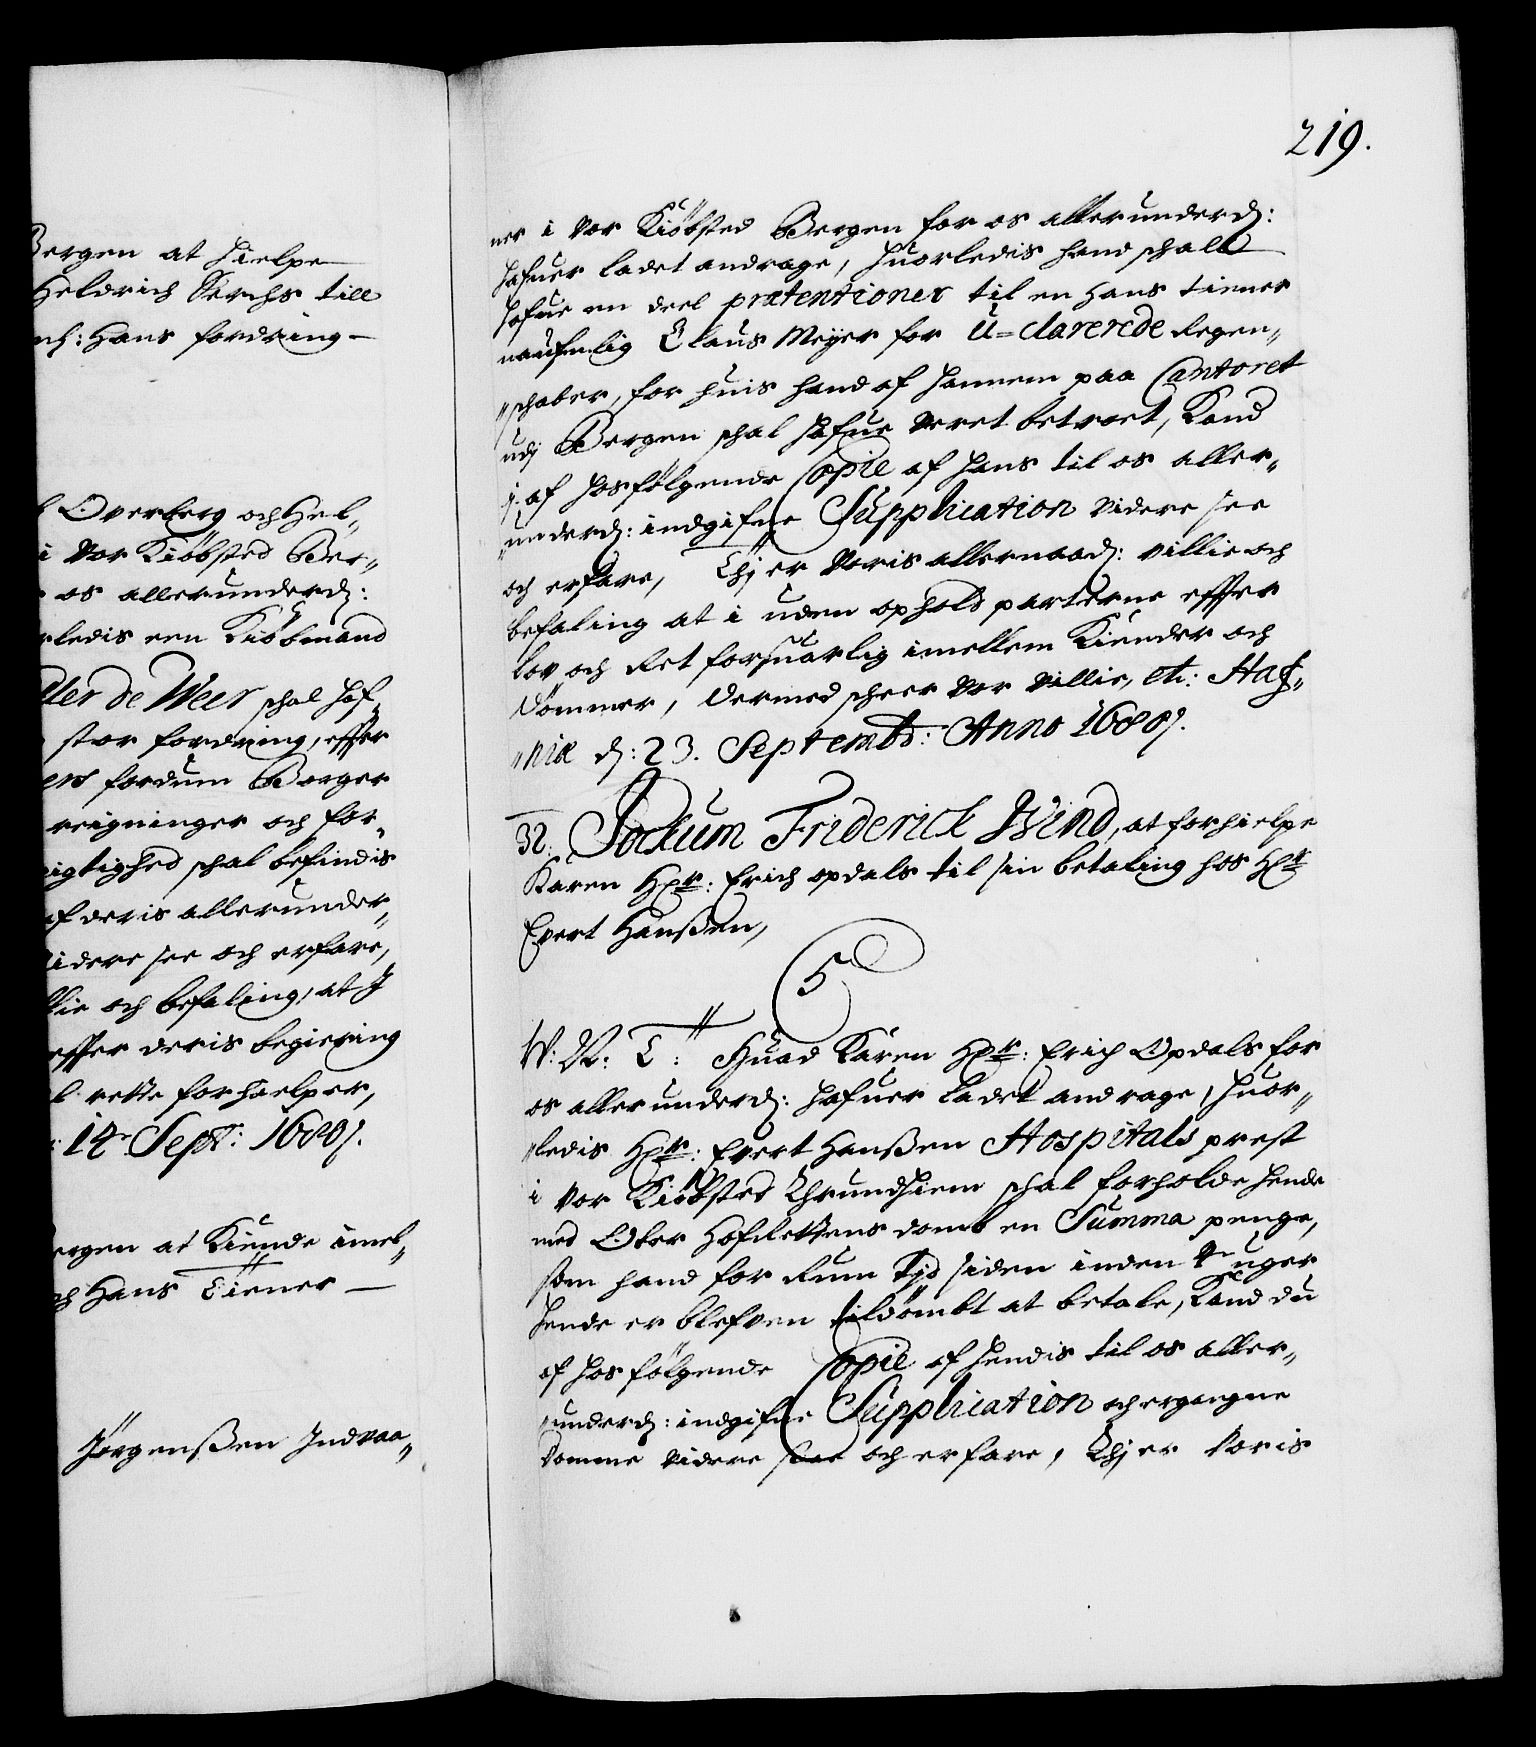 Bergen at hielpe
Heldrich Verchs till
nh: Hans fordring –
Overberg och Hel„
i Vor Kiöbsted Ber„
os allerunderd:
rledis een Kiöbmand
ller de Weer schal haf„
stor fordring, effter
ers fordum Borger
reigninger och for„
rigtighed schal befindis
af deris allerunder„
videre see och erfare,
llie och befaling, at I
effter deris begiering
l rette forhielper,
14 Sept: 1680.
ergen at Kiende imel„
och Hans Tiener –
Jörgenßen Indvaa„
219.
ner i Vor Kiöbsted Bergen for os allerunderd:
hafuer ladet andrage, huorledis hand schall
hafue en deel prætentioner til en Hans tiener
naufnlig Claus Meyer for U=clarerede Regen„
„schaber, for huis hand af hannem paa Cantoret
udj Bergen schal hafue veret betroet, Kand
j af hosfölgende Copie af hans til os aller„
„underd: indgifne Supplication videre see
och erfare, Thj er Voris allernaad: villie och
befaling at i uden ophold parterne effter
lov och Ret forsuarlig imellem Kiender och
dömmer, dermed scheer Vor Villie, etc: Haf„
„niæ d: 23. Septembr: Anno 1680.
Jockum Friderick Wind, at forhielpe
Karen Hr: Erich opdals til sin betaling hos Hr
Evert Hanßen,
5
W: N: T: Huad Karen Hr: Erich Opdals for
os allerunderd: hafuer ladet andrage, huor„
„ledis Hr: Evert Hanßen Hospitals prest
i Vor Kiöbsted Thrundhiem schal forholde hende
med Ober Hofrettens domb en Summa penge,
som hand for Rum Tjd siden inden uger
hende er blefven tildömbt at betale, Kand du
af hosfölgende Copie af hendis til os aller„
„underd: indgifne Supplication och ergangne
Domme videre see och erfare, Thj er Voris